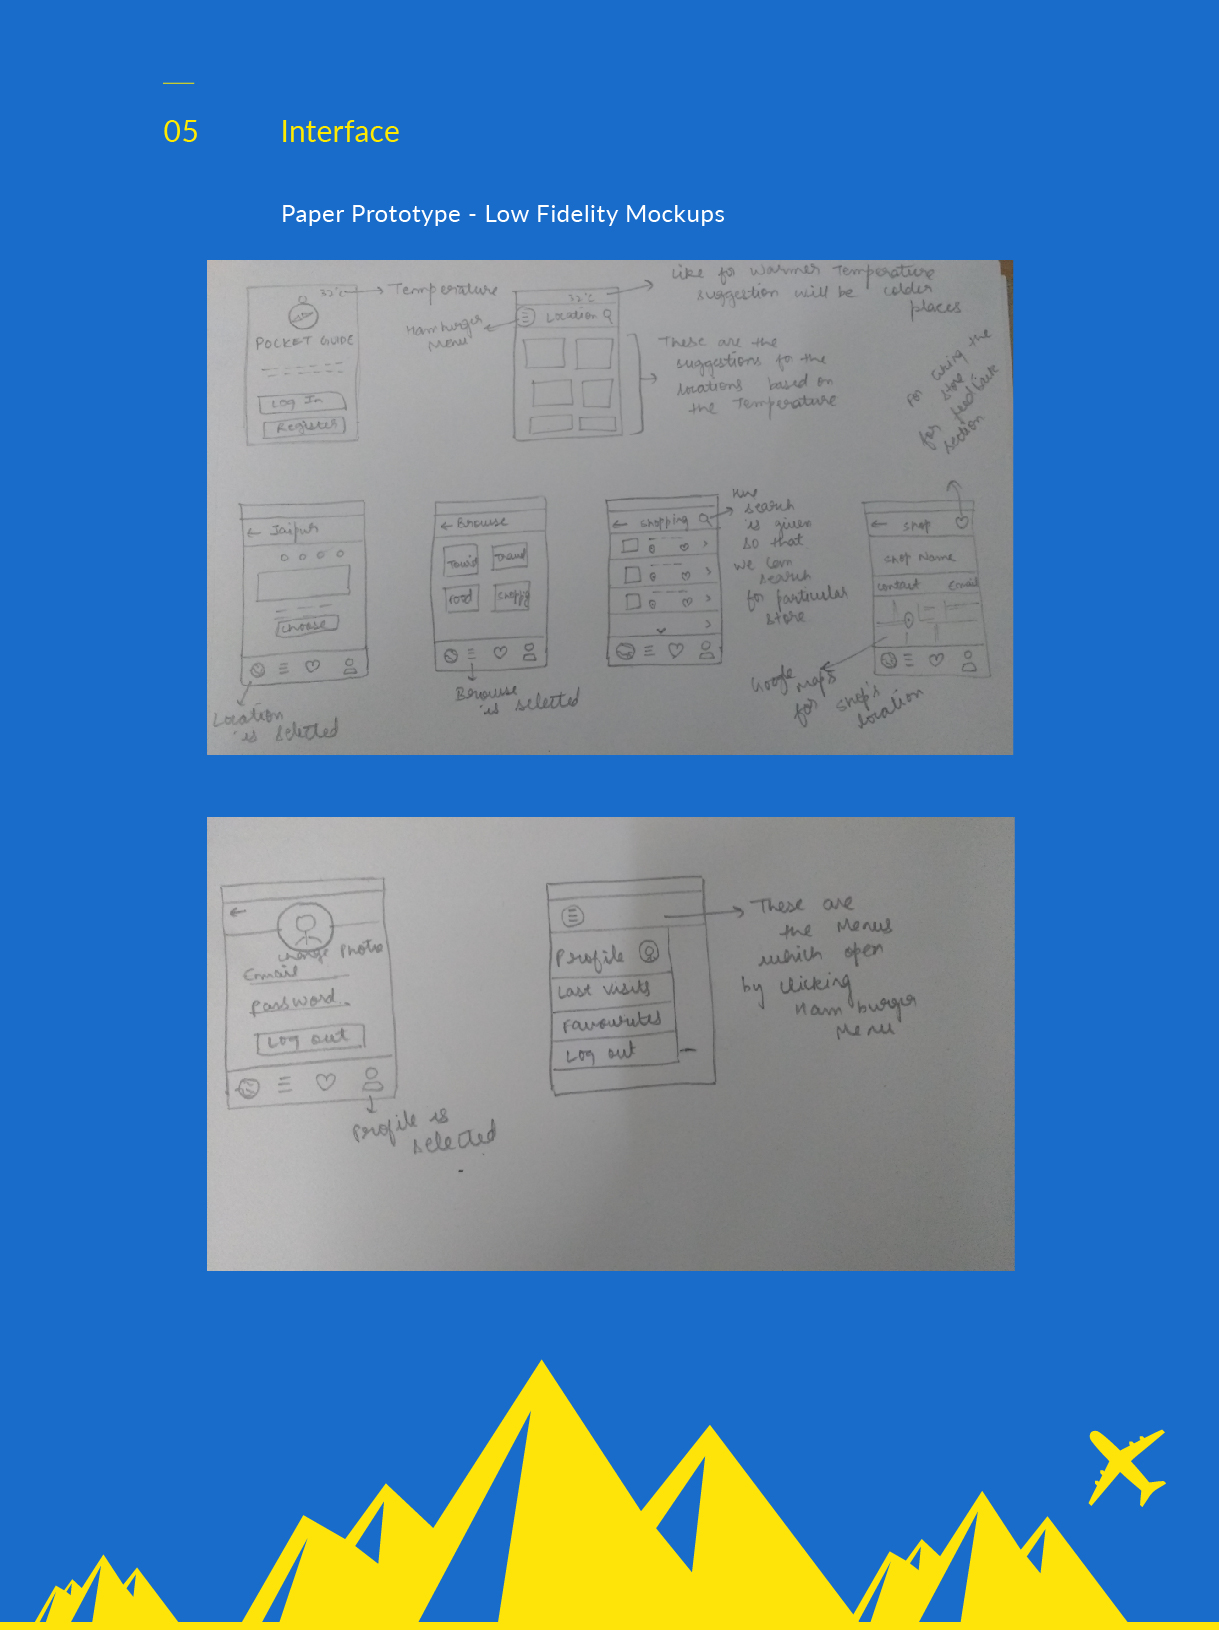 05
Interface
Paper Prototype - Low Fidelity Mockups
32°C
Temperature
POCKET GUIDE
Log In
Register
Hamburger
Menu
32°C
Location
Like for warmer Temperature
suggestion will be colder
places
These are the
suggestions for the
locations based on
the Temperature
the
store
for feed back
section
← Jaipur
choose
Location
is selected
← Browse
Travel
Food
Browse
is selected
← shopping
search
is given
so that
we can
search
for particular
store
← shop
shop Name
contact
Email
Google
maps
for shop's
location
←
change Photo
Email
Password
Log out
Profile is
selected
Profile
Last visits
Favourites
Log out
These are
the Menus
which open
by clicking
Ham burger
Menu